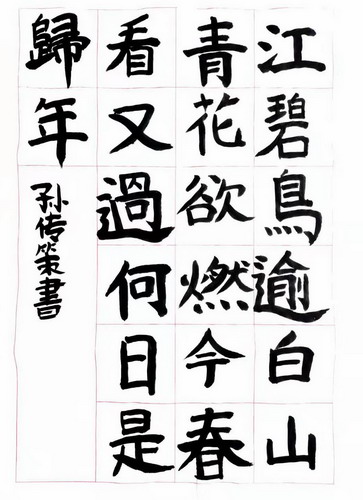 江碧鳥逾白山
青花欲燃今春
看又過何日是
歸年
孙传策書